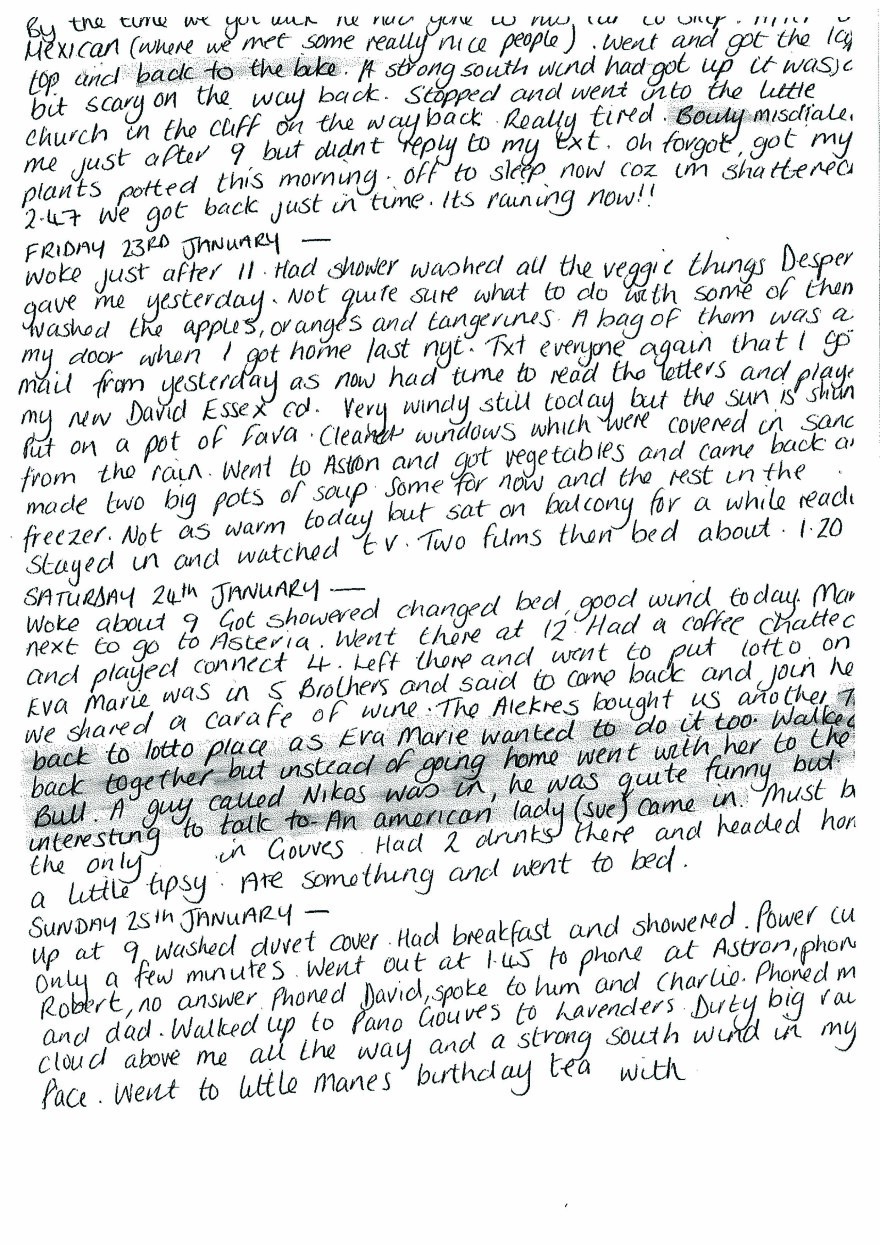 By the time we got back he had gone to his car to
Mexican (where we met some really nice people). Went and got the
top and back to the bike. A strong south wind had got up it was
bit scary on the way back. Stopped and went into the little
church in the cliff on the way back. Really tired. Bouly misdiale
me just after 9 but didnt reply to my txt. oh forgot, got my
plants potted this morning. off to sleep now coz im shattered
2.47 we got back just in time. Its raining now!!
FRIDAY 23RD JANUARY —
Woke just after 11. Had shower washed all the veggie things Desper
gave me yesterday. Not quite sure what to do with some of them
Washed the apples, oranges and tangerines. A bag of them was a
my door when I got home last nyt. Txt everyone again that I go
mail from yesterday as now had time to read the letters and playe
my new David Essex cd. Very windy still today but the sun is shin
Put on a pot of Fava. Cleaned windows which were covered in sand
from the rain. Went to Aston and got vegetables and came back a
made two big pots of soup some for now and the rest in the
freezer. Not as warm today but sat on balcony for a while readi
Stayed in and watched t v. Two films then bed about 1.20
SATURDAY 24th JANUARY —
Woke about 9 Got showered changed bed, good wind today. Mar
next to go to Asteria. Went there at 12. Had a coffee chatted
and played connect 4. Left there and went to put lotto on
Eva Marie was in 5 Brothers and said to come back and join he
we shared a carafe of wine. The Alekres bought us another. T
back to lotto place as Eva Marie wanted to do it too. Walked
back together but instead of going home went with her to the
Bull. A guy called Nikos was in, he was quite funny but
interesting to talk to. An american lady (sue) came in. Must b
the only in Gouves. Had 2 drinks there and headed hom
a little tipsy. Ate something and went to bed.
SUNDAY 25th JANUARY —
Up at 9, washed duvet cover. Had breakfast and showered. Power cu
Only a few minutes. Went out at 1.45 to phone at Astron, phon
Robert, no answer. Phoned David, spoke to him and Charlie. Phoned m
and dad. Walked up to Pano Gouves to Lavenders. Dirty big rai
cloud above me all the way and a strong south wind in my
Face. Went to little manes birthday tea with